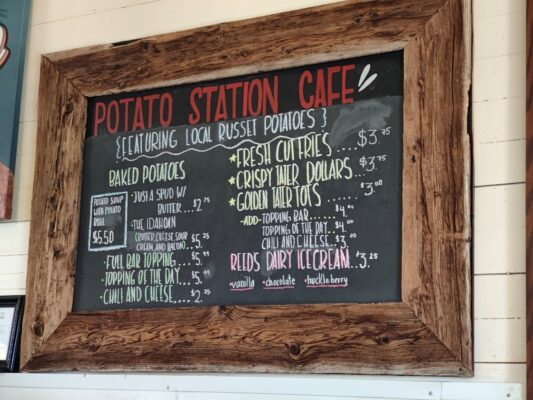 POTATO STATION CAFE
{FEATURING LOCAL RUSSET POTATOES}
BAKED POTATOES
POTATO SOUP
WITH POTATO
ROLL
$5.50
•JUST A SPUD W/
BUTTER....$2.75
•THE IDAHOAN
(BUTTER, CHEESE, SOUR
CREAM, AND BACON) $5.25
•FULL BAR TOPPING....$5.99
•TOPPING OF THE DAY....$5.99
•CHILI AND CHEESE....$2.25
*FRESH CUT FRIES....$3.75
*CRISPY TATER DOLLARS....$3.75
*GOLDEN TATER TOTS....$3.00
-ADD- TOPPING BAR......$4.00
TOPPING OF THE DAY....$4.00
CHILI AND CHEESE....$3.00
REEDS DAIRY ICE CREAM...$3.28
•vanilla •chocolate •huckleberry